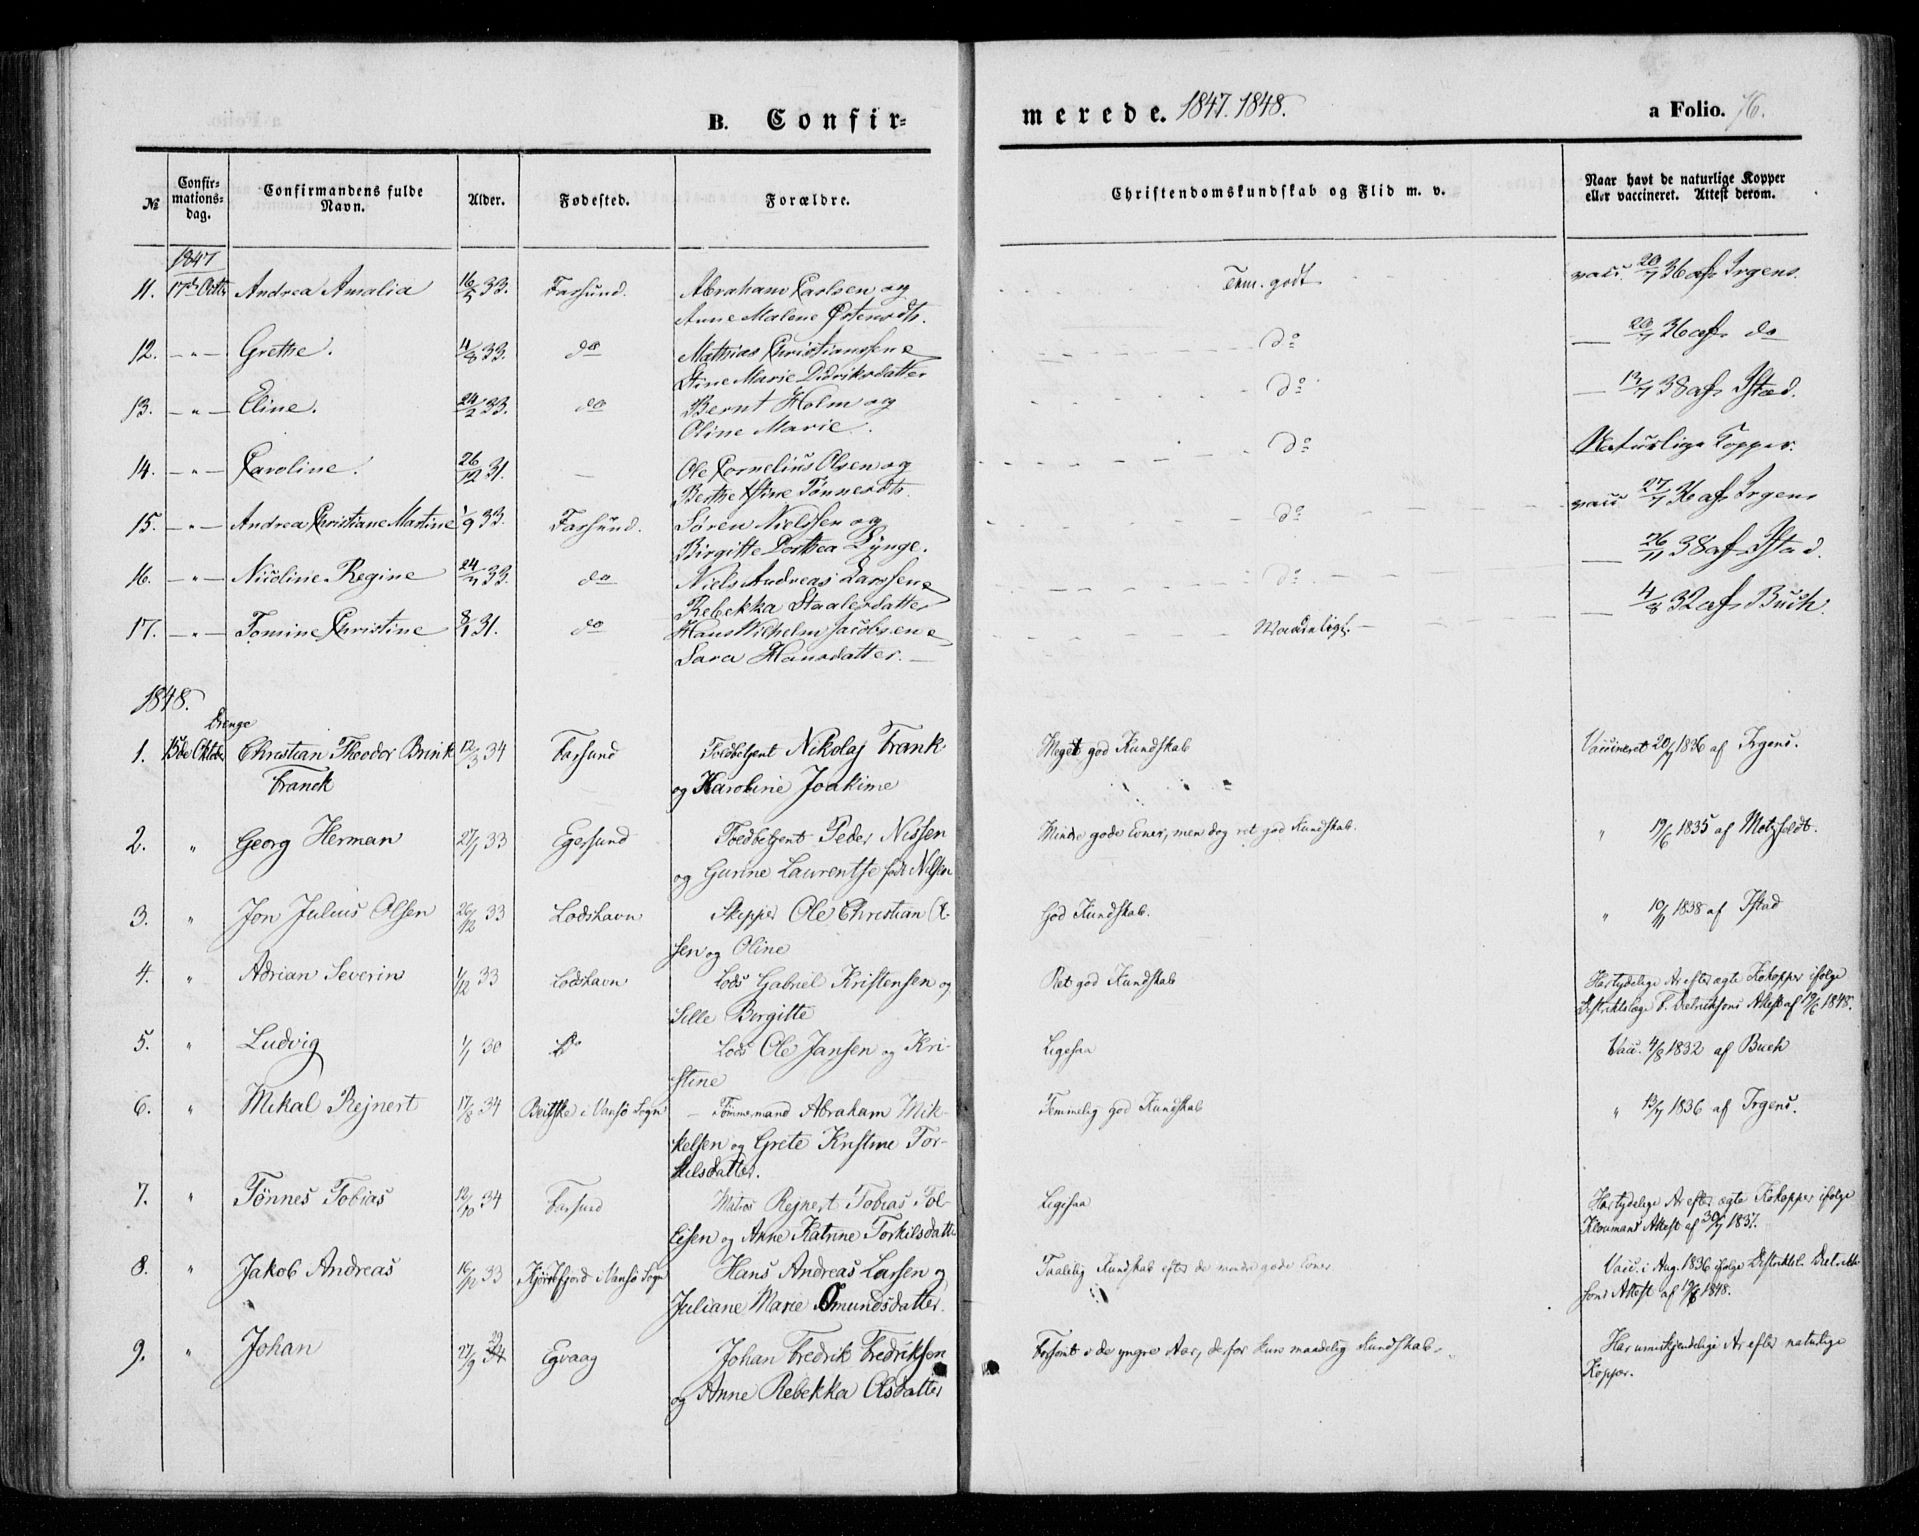 B. Confir-
merede. 1847. 1848.
a Folio. 76.
№
Confir-
mations-
dag.
Confirmandens fulde
Navn.
Alder.
Fødested.
Forældre.
Christendomskundskab og Flid m. v.
Naar havt de naturlige Kopper
eller vaccineret. Attest derom.
1847
11. 17de Octbr Andrea Amalia 16/5 33. Farsund. Abraham Carlsen og Tem. godt vacc. 20/7 36 af Irgens.
Anne Malene Østensdtr.
12. — " — Grethe. 4/8 33. do Mathias Christianssen do — 20/7 36 af do
Stine Marie Didriksdatter
13. — " — Eline. 24/2 33. do Bernt Holm og do — 13/7 38 af Istad.
Oline Marie.
14. — " — Caroline. 26/12 31. — Ole Cornelius Olsen og do Naturlige Kopper.
Berthe Stine Tønnesdtr.
15. — " — Andrea Christiane Martine 1/9 33. Farsund. Søren Nielsen og do vacc. 27/7 36 af Irgens
Birgitte Dorthea Lynge.
16. — " — Nicoline Regine 24/7 33. do Niels Andreas Larssen do — 26/11 38 af Istad.
Rebekka Staalesdatter
17. — " — Tomine Christine 8/1 31. do Hans Wilhelm Jacobsen Maadeligt. — 4/8 32 af Buch.
Sara Hansdatter. —
1848.
Drenge
1. 15de Oktober Christian Theodor Brink 12/3 34 Farsund Toldbetjent Nikolaj Frank Meget god Kundskab Vaccineret 20/7 1836 af Irgens.
Franck og Karoline Joakime
2. " Georg Herman 27/1 33 Egersund Toldbetjent Peder Nissen Mindre gode Evner, men dog ret god Kundskab. " 19/6 1835 af Motzfeldt.
og Gurine Laurentse født Nilsen
3. " Jon Julius Olsen 26/12 33 Lodshavn Skipper Ole Christian Ol- God Kundskab. " 10/11 1838 af Istad
sen og Oline
4. " Adrian Severin 1/12 33 Lodshavn Lods Gabriel Kristensen og Ret god Kundskab Har tydelige Ar efter ægte Kokopper ifølge
Sille Birgitte Distriktslæge Dietriksons Attest af 19/6 1848.
5. " Ludvig 1/1 30 Do Lods Ole Jansen og Kri- Ligesaa Vacc. 4/8 1832 af Buch
stine
6. " Mikal Rejnert 17/8 34 Beitske i Vansö Sogn Tømmermand Abraham Mik- Temmelig god Kundskab " 13/7 1836 af Irgens.
kelsen og Grete Kristine Tor-
kilsdatter.
7. " Tønnes Tobias 12/10 34 Farsund Matros Rejnert Tobias Tol- Ligesaa Har tydelige Ar efter ægte Kokopper ifølge
leisen og Anne Katrine Torkilsdatter Kloumans Attest af 30/7 1837.
8. " Jakob Andreas 16/12 33 Kjørrefjord i Vansö Sogn Hans Andreas Larsen og Taalelig Kundskab efter de mindre gode Evner Vacc. i Aug. 1836 ifølge Distriktsl. Dietrik-
Juliane Marie Omundsdatter. sons Attest af 19/6 1848.
9. " Johan 27/9 29 34 Egvaag Johan Fredrik Fredriksen Forsømt i de yngre Aar, derfor kun maadelig Kundskab. Har umiskjendelige Ar efter naturlige
og Anne Rebekka Olsdatter Kopper.